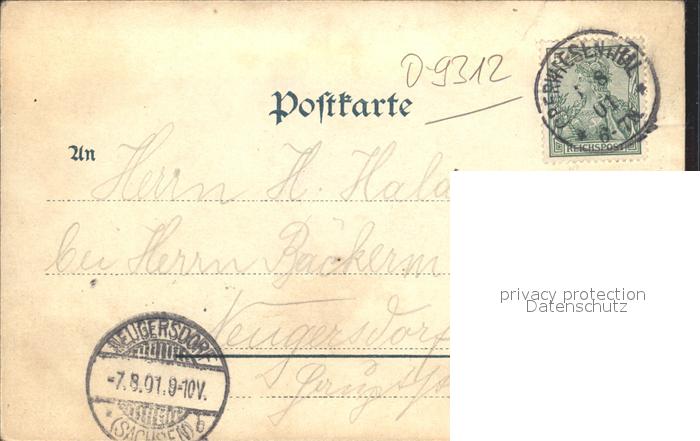 D-9312
Postkarte
OBERWIESENTHAL
8
01
REICHSPOST
An
Herrn H.
bei Herrn Bäckerm
Neugersdorf
privacy protection
Datenschutz
NEUGERSDORF
-7.8.01.9-10V.
(SACHSEN) b